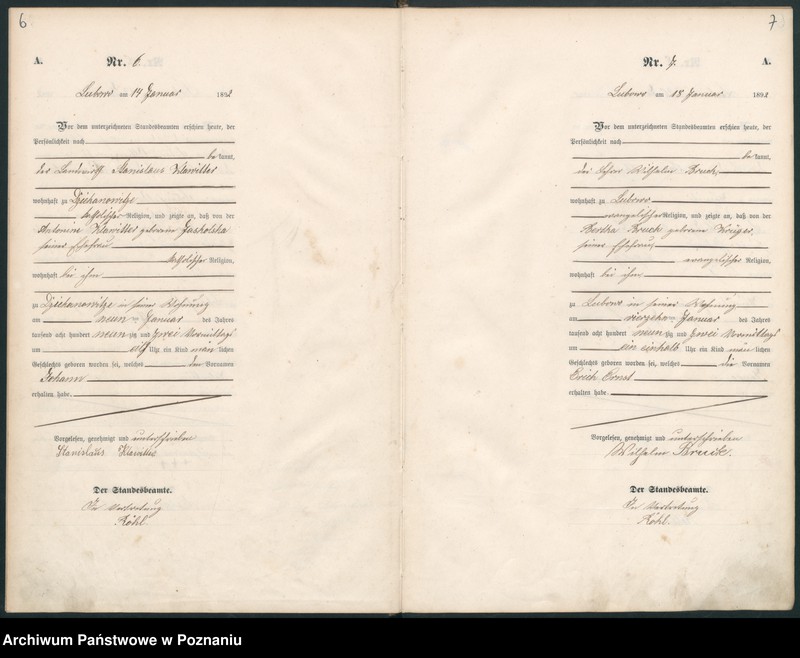 6
A.
Nr. 6.
Lubowo am 14 Januar 1892
Vor dem unterzeichneten Standesbeamten erschien heute, der
Persönlichkeit nach
bekannt,
der Landwirth Stanislaus Klawitter
wohnhaft zu Dziekanowitze
katholischer Religion, und zeigte an, daß von der
Antonine Klawitter geborene Jasholska
seiner Ehefrau
katholischer Religion,
wohnhaft bei ihm
zu Dziekanowitze in seiner Wohnung
am neun Januar des Jahres
tausend acht hundert neunzig und zwei Vormittags
um elf Uhr ein Kind männlichen
Geschlechts geboren worden sei, welches den Vornamen
Johann
erhalten habe.
Vorgelesen, genehmigt und unterschrieben
Stanislaus Klawitter
Der Standesbeamte.
In Vertretung
Röhl.
7
Nr. 7.
A.
Lubowo am 18 Januar 1892
Vor dem unterzeichneten Standesbeamten erschien heute, der
Persönlichkeit nach
bekannt,
der Wilhelm Bruck,
wohnhaft zu Lubowo
evangelischer Religion, und zeigte an, daß von der
Bertha Bruck geborene Krüger,
seiner Ehefrau,
evangelischer Religion,
wohnhaft bei ihm
zu Lubowo in seiner Wohnung
am vierzehn Januar des Jahres
tausend acht hundert neunzig und zwei Vormittags
um ein einhalb Uhr ein Kind männlichen
Geschlechts geboren worden sei, welches die Vornamen
Erich Ernst
erhalten habe
Vorgelesen, genehmigt und unterschrieben
Wilhelm Bruck.
Der Standesbeamte.
In Vertretung
Röhl.
Archiwum Państwowe w Poznaniu